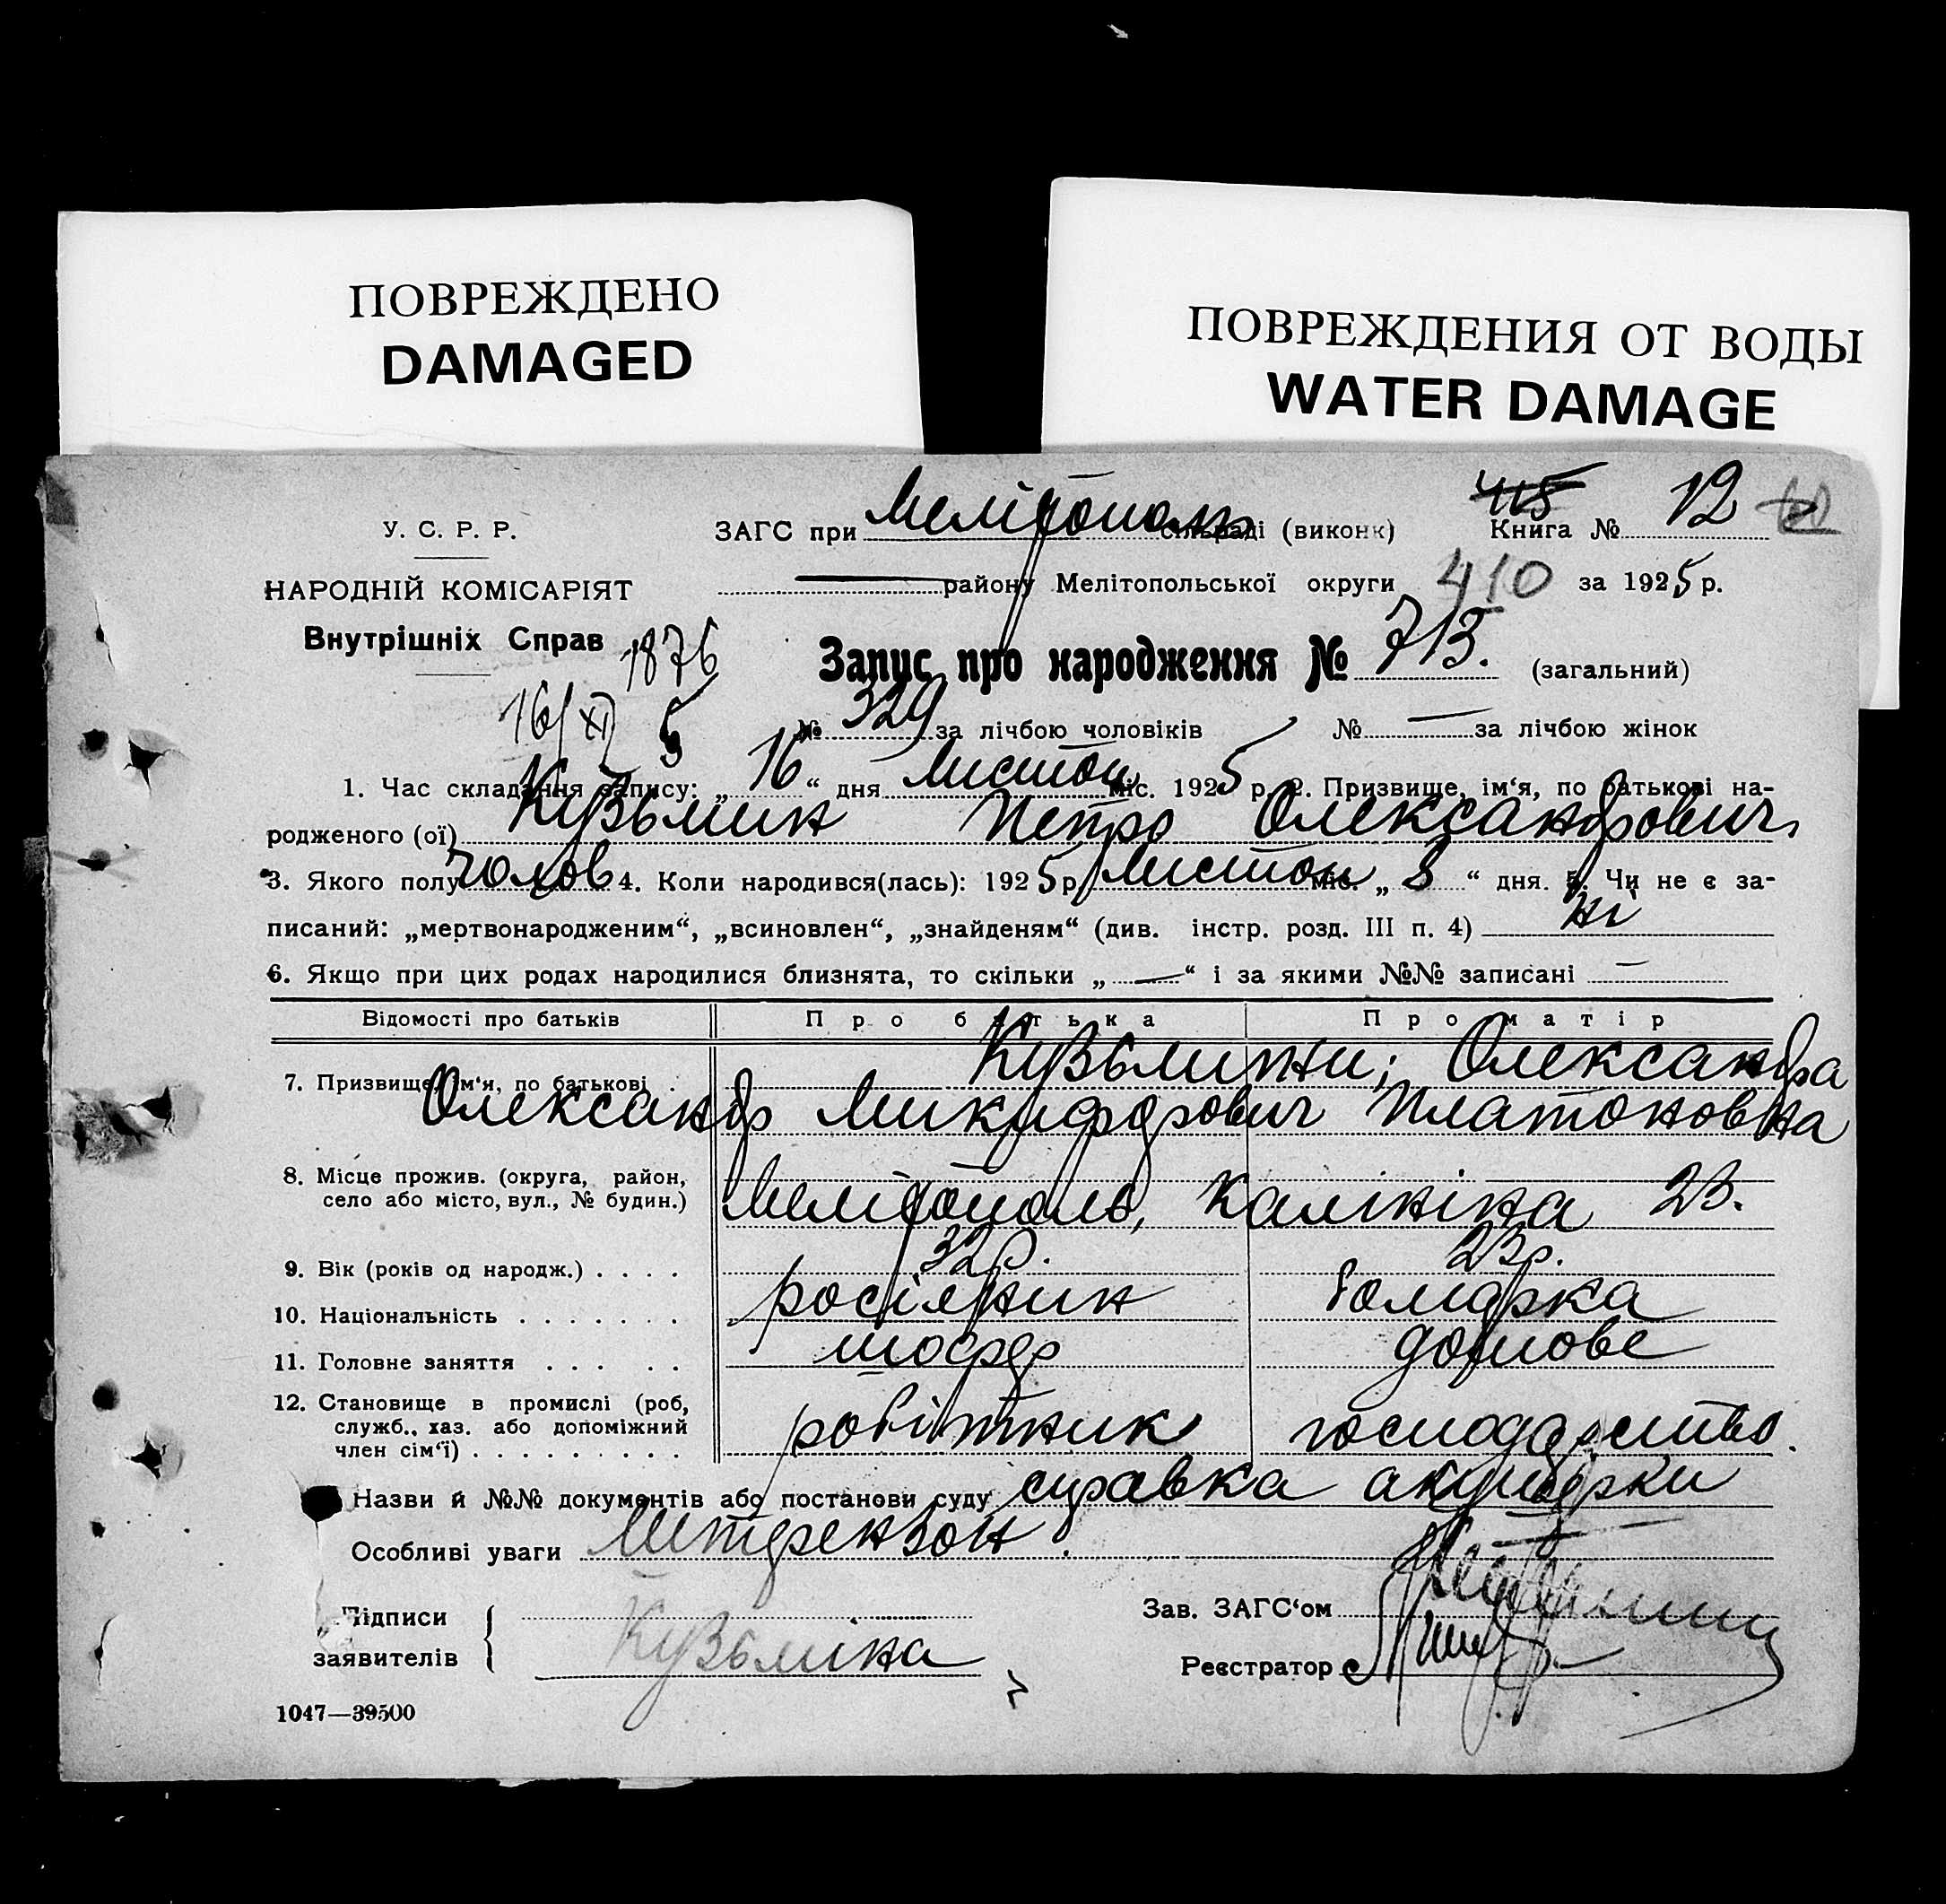 ПОВРЕЖДЕНО
DAMAGED
ПОВРЕЖДЕНИЯ ОТ ВОДЫ
WATER DAMAGE
У. С. Р. Р.
НАРОДНІЙ КОМІСАРІЯТ
Внутрішніх Справ
1876
16/XI 5
415
ЗАГС при Мелітополь сільраді (виконк) Книга № 12
району Мелітопольської округи 410 за 1925 р.
Запис про народження № 713. (загальний)
№ 329 за лічбою чоловіків № — за лічбою жінок
1. Час складання запису: „ 16 “ дня Листоп міс. 1925 р. 2. Призвище, ім‘я, по батькові на-
родженого (ої) Кузьмин Петро Олександрович
3. Якого полу чолов 4. Коли народився(лась): 1925 р. Листоп міс. „ 8 “ дня. 5. Чи не є за-
писаний: „мертвонародженим“, „всиновлен“, „знайденям“ (див. інстр. розд. III п. 4) ні
6. Якщо при цих родах народилися близнята, то скільки „ — “ і за якими №№ записані —
Відомості про батьків Про батька Про матір
7. Призвище, ім‘я, по батькові . Кузьмини; Олександра
Олександр Микифорович Платоновна
8. Місце прожив. (округа, район,
село або місто, вул., № будин.) Мелітополь, Калініна 23.
9. Вік (років од народж.) . . . . 32 р. 23 р.
10. Національність . . . . . . . росіянин болгарка
11. Головне заняття . . . . . шофер домове
12. Становище в промислі (роб,
служб., хаз. або допоміжний
член сім‘ї) . . . . . . . . . робітник господарство.
Назви й №№ документів або постанови суду справка акушерки
Особливі уваги Штерензон.
Підписи
заявителів Кузьміна
Зав. ЗАГС‘ом
Реєстратор
1047—39500